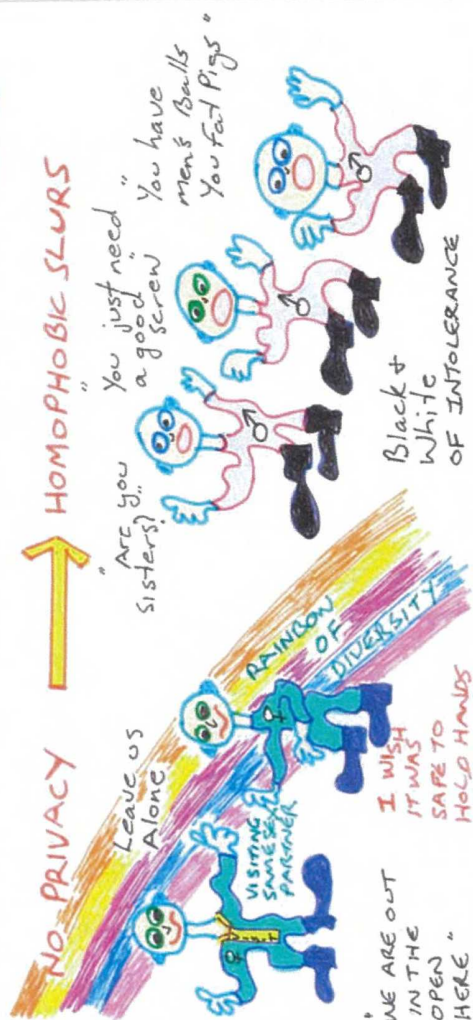 NO PRIVACY
HOMOPHOBIC SLURS
Leave us
Alone
"Are you
sisters?"
"You just need
a good
screw"
"You have
men's Balls
You Fat Pigs"
RAINBOW
OF
DIVERSITY
VISITING
SAME SEX
PARTNER
"WE ARE OUT
IN THE
OPEN
HERE"
I WISH
IT WAS
SAFE TO
HOLD HANDS
Black +
White
OF INTOLERANCE